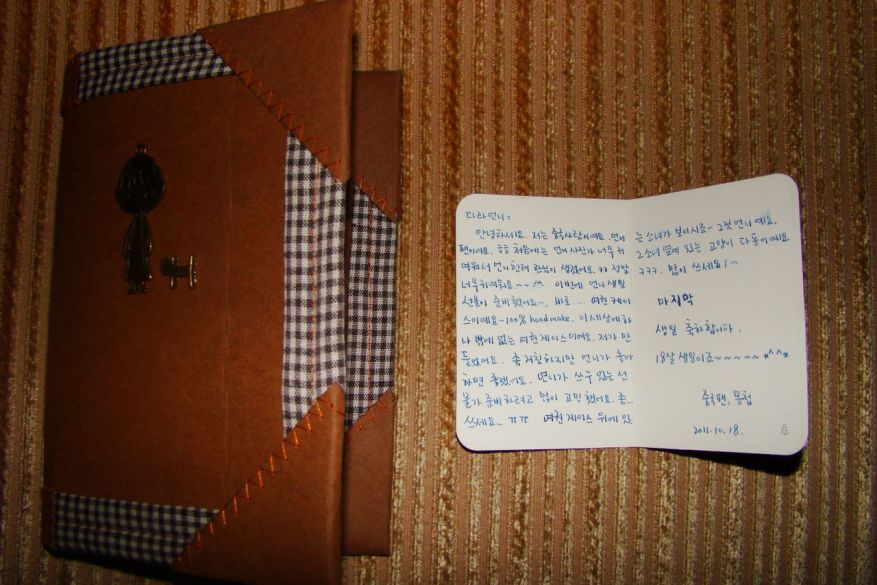 다라언니:
안녕하세요. 저는 중국사람이예요. 언니
팬이예요. ㅎㅎ 처음에는 언니 사진가 너무 귀
여워서 언니한테 관심이 생겼어요. ㅋㅋ 정말
너무 귀여워요~~ ^^ 이번에 언니 생일
선물이 준비했어요~. 바로.... 여권 케이
스이예요~ 100% handmake. 이 세상에 하
나 밖에 없는 여권 케이스이예요. 저가 만
들었어요. 좀 거칠하지만 언니가 좋아
하면 좋겠어요. 언니가 쓰수 있는 선
물가 준비하려고 많이 고민했어요. 좀...
쓰세요... ㅠㅠ 여권 케이스 위에 있
는 소녀가 보이시죠~ 그것 언니예요.
그 소녀 옆에 있는 고양이 다동이예요
ㅋㅋㅋ. 많이 쓰세요!~
마지막
생일 축하합니다.
18살 생일이죠~~~~~ *^^*
중국팬,
2011.10.18.